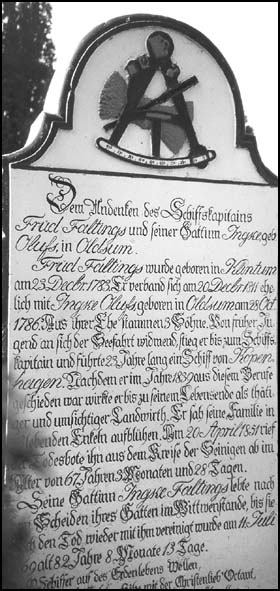 Dem Andenken des Schiffskapitains
Früd Faltings und seiner Gattinn Ingke geb
Olufs, in Oldsum.
Früd Faltings wurde geboren in Klintum
am 23. Decbr. 1783. Er verband sich am 20 Decbr 1811 ehe-
lich mit Ingke Olufs, geboren in Oldsum am 28. Oct.
1786. Aus ihrer Ehe stammen 3 Söhne. Von früher Ju-
gend an sich der Seefahrt widmend, stieg er bis zum Schiffs-
kapitain und führte 23 Jahre lang ein Schiff von Kopen-
hagen. Nachdem er im Jahre 1839 aus diesem Berufe
geschieden war wirkte er bis zu seinem Lebensende als thäti-
ger und umsichtiger Landwirth. Er sah seine Familie in
lebenden Enkeln aufblühen. Am 20. April 1851 rief
Todesbote ihn aus dem Kreise der Seinigen ab im
Alter von 67 Jahren 3 Monaten und 28 Tagen.
Seine Gattinn Ingke Faltings lebte nach
Scheiden ihres Gatten im Wittwenstande, bis sie
den Tod wieder mit ihm vereinigt wurde am 11. Juli
69 alt 82 Jahre 8 Monate 13 Tage.
Schiffer auf des Erdenlebens Wellen,
mit der Christenlieb' Octant,